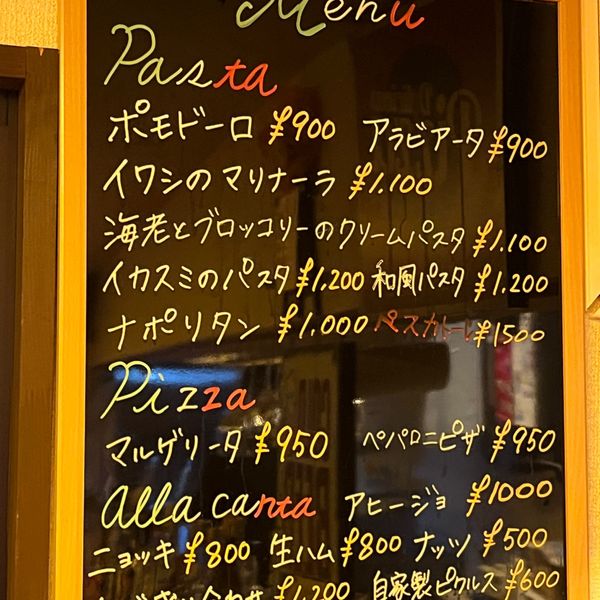 Menu
Pasta
ポモドーロ ¥900 アラビアータ ¥900
イワシのマリナーラ ¥1.100
海老とブロッコリーのクリームパスタ ¥1.100
イカスミのパスタ ¥1.200 和風パスタ ¥1.200
ナポリタン ¥1.000 ペスカトーレ ¥1500
Pizza
マルゲリータ ¥950 ペパロニピザ ¥950
alla canta アヒージョ ¥1000
ニョッキ ¥800 生ハム ¥800 ナッツ ¥500
¥1.200 自家製ピクルス ¥600